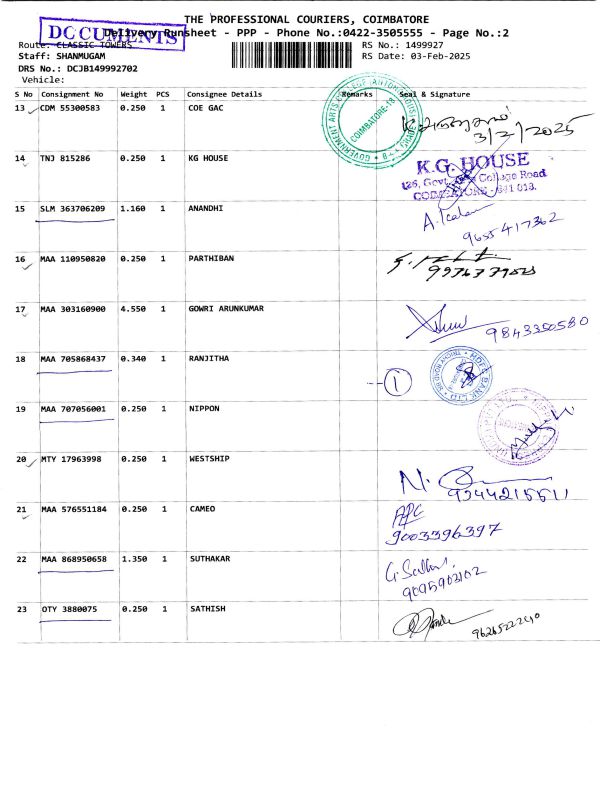 THE PROFESSIONAL COURIERS, COIMBATORE
DOCUMENTS
Delivery Runsheet - PPP - Phone No.:0422-3505555 - Page No.:2
Route: CLASSIC TOWERS
RS No.: 1499927
Staff: SHANMUGAM
RS Date: 03-Feb-2025
DRS No.: DCJB149992702
Vehicle:
S No Consignment No Weight PCS Consignee Details Remarks Seal & Signature
13 CDM 55300583 0.250 1 COE GAC
GOVERNMENT ARTS COLLEGE
COIMBATORE-18
3/2/2025
14 TNJ 815286 0.250 1 KG HOUSE
K.G. HOUSE
126, Govt. College Road
COIMBATORE - 641 018.
15 SLM 363706209 1.160 1 ANANDHI
9655417362
16 MAA 110950820 0.250 1 PARTHIBAN
17 MAA 303160900 4.550 1 GOWRI ARUNKUMAR
9843350580
18 MAA 705868437 0.340 1 RANJITHA
1
HDFC BANK LTD
19 MAA 707056001 0.250 1 NIPPON
20 MTY 17963998 0.250 1 WESTSHIP
9344215511
21 MAA 576551184 0.250 1 CAMEO
9003396397
22 MAA 868950658 1.350 1 SUTHAKAR
9095903102
23 OTY 3880075 0.250 1 SATHISH
9626522240